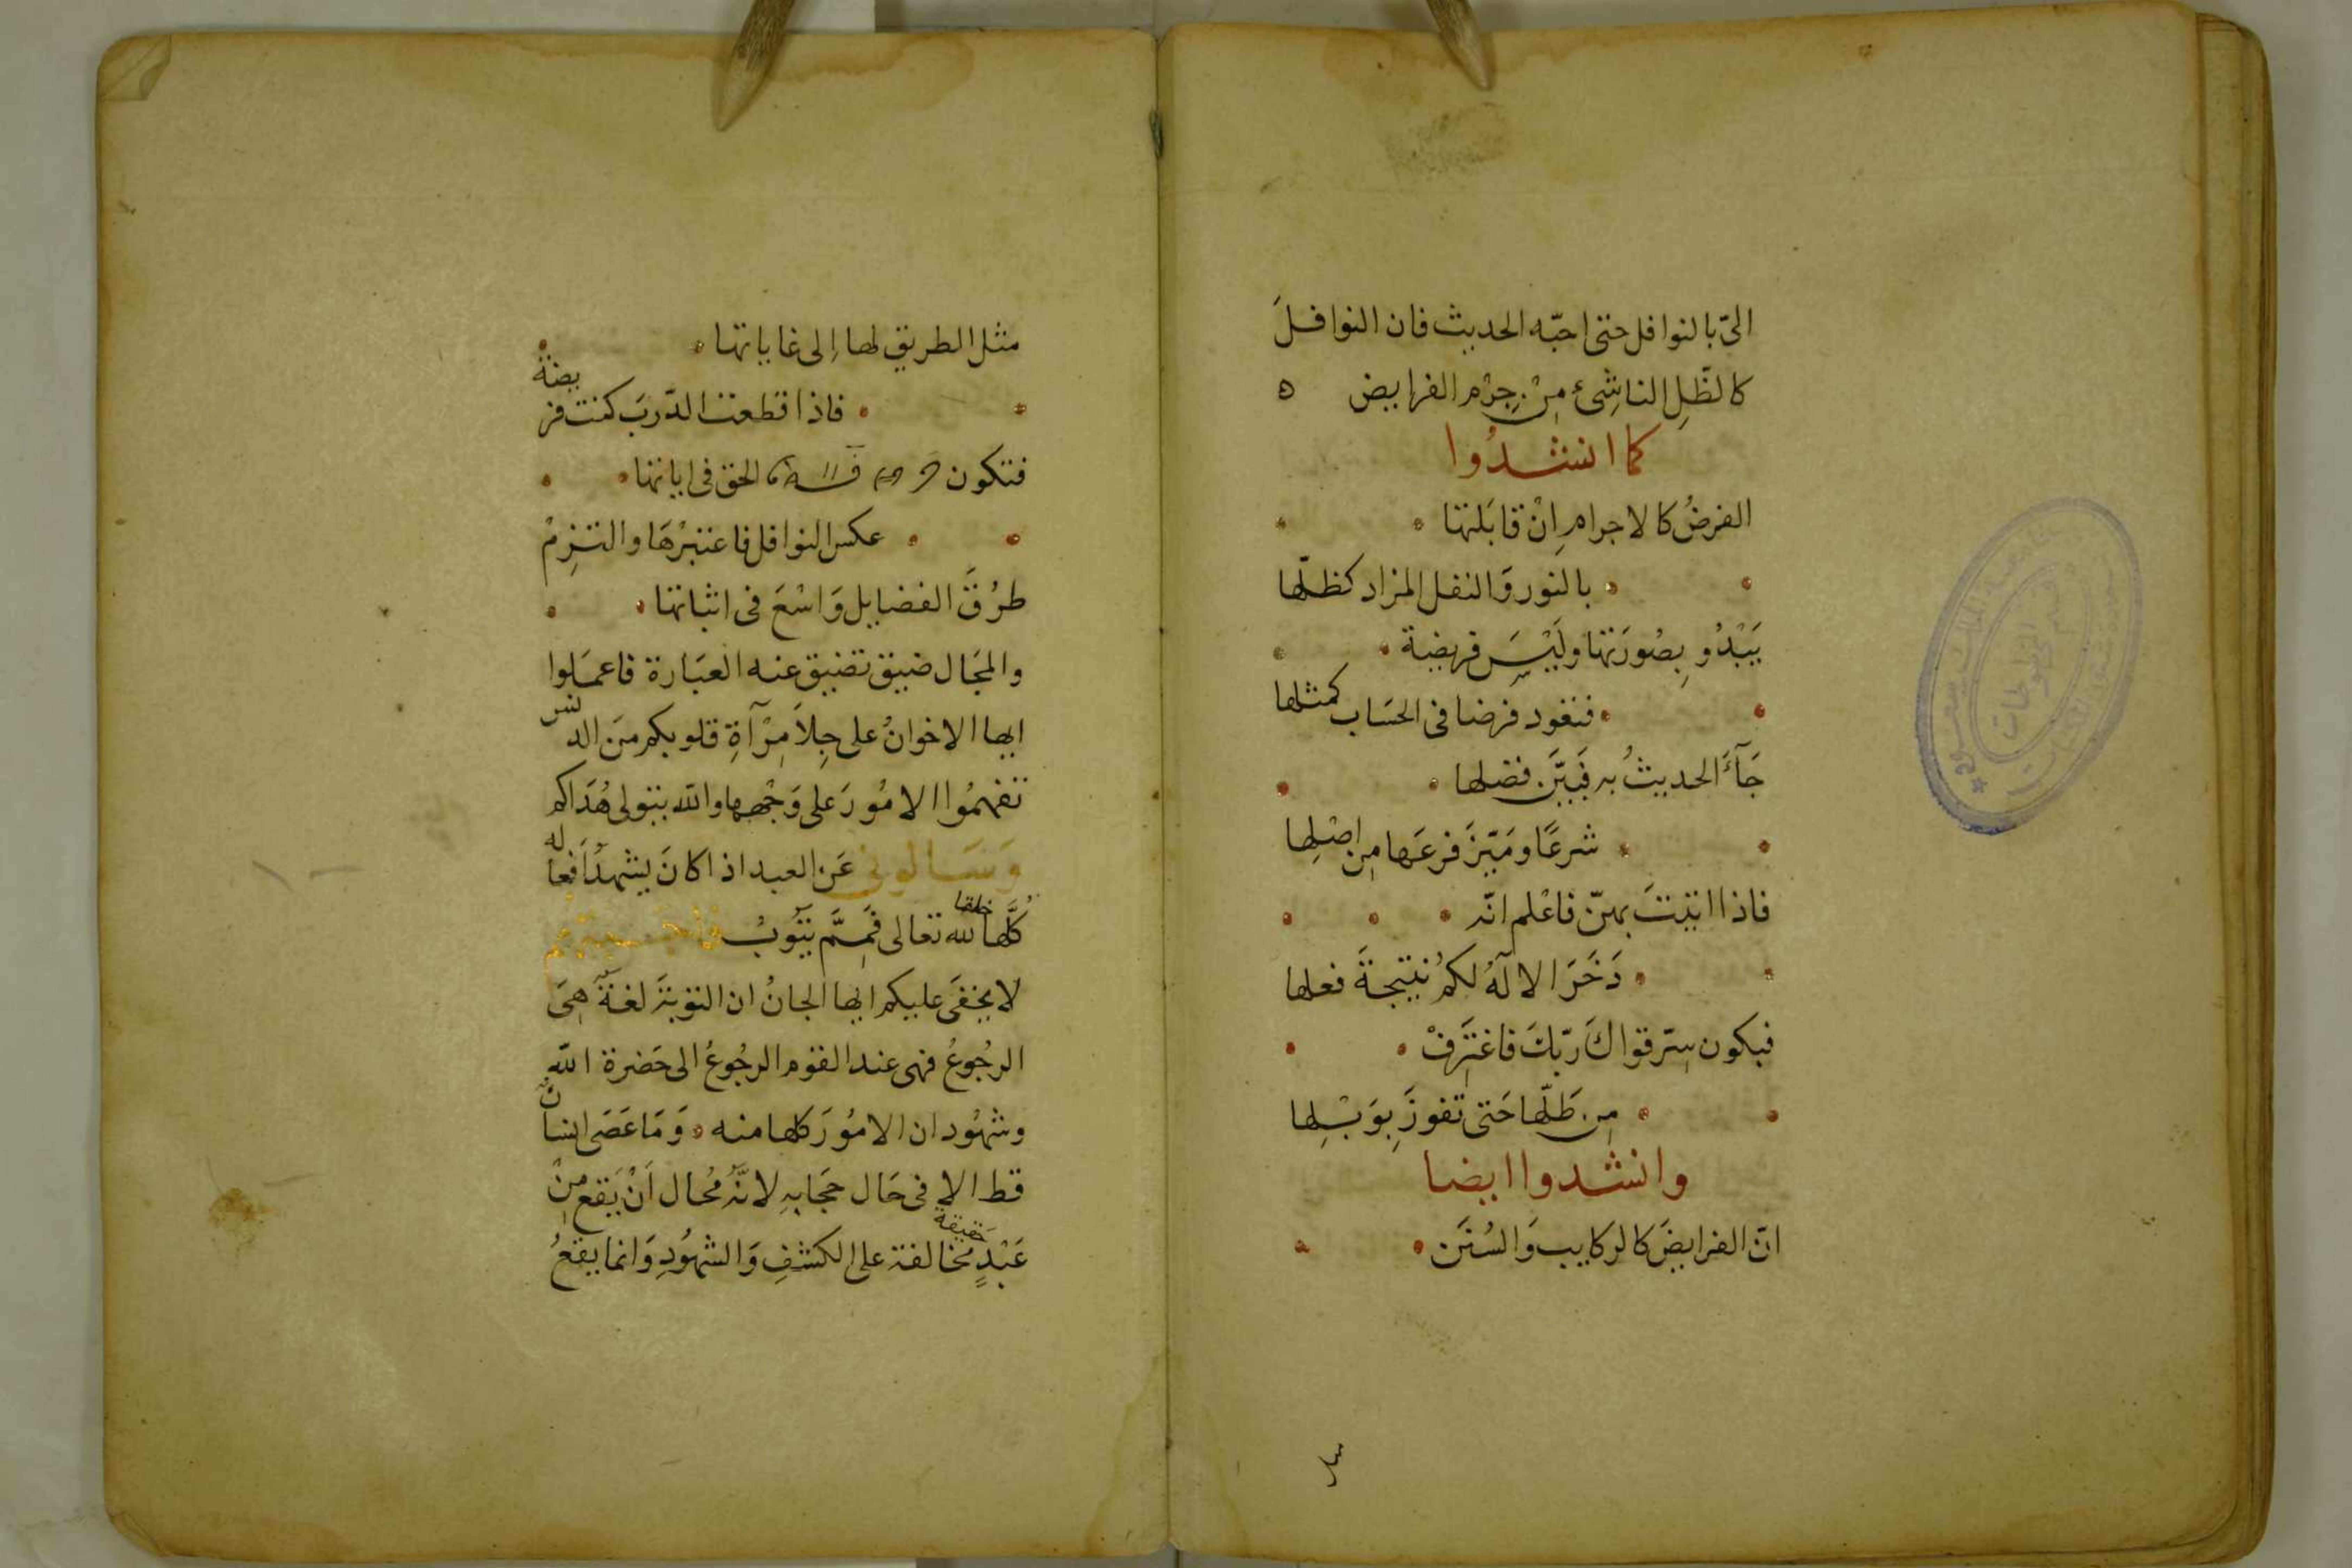 الىّ بالنوافل حتى احبّه الحديث فان النوافلَ
كالظّلِ الناشِئ مِنْ جِرْم الفرايض ه
كما انشدُوا
الفرضُ كالاجرامِ اِنْ قابَلتها
بالنور وَالنفل المزاد كظلّها
يَبْدُو بِصُورَتها ولَيْسَ فريضة
فتعود فرضا فى الحسَاب كمثلها
جَآءَ الحديثُ به فَبَيَّن فضلها
شرعًا ومَيّزَ فرعَها من اصْلِها
فاذا اتيتَ بهنّ فاعْلم انّه
دَخَرَ الالٓهُ لكم نتيجةَ فعلها
فيكون سِرّ قواكَ رَبّكَ فاغتَرِفْ
مِن طَلّها حَتى تفوزَ بِوَبْلِها
وانشدوا ايضا
انّ الفرايضَ كالركايب وَالسُنَن
مثل الطريق لها اِلى غاياتها
فاذا قطعت الدّربَ كنت فريضة
فتكون الحق فى اياتها
عكس النوافل فاعتبرْهَا والتزِمْ
طرُقَ الفضايل وَاسْعَ فى اثباتها
والمجَال ضيق تضيق عنه العبَارة فاعمَلوا
ايها الاخوانُ على جِلاَ مِرْآةِ قلوبكم مَن الدنس
تفهمُوا الامُورَ على وَجْهها والله يتولى هُدَاكم
وَسَالونى عَن العبد اذا كانَ يشهدُ اَفعاله
كُلَّها خلقا لله تعالى فَمِمَّ يَتُوبُ فاجبتهم
لا يخفَى عليكم ايها الجانُ ان التوبَة لغةً هِىَ
الرجُوعُ فهى عند القوم الرجُوعُ الى حَضرة اللّهِ
وشهُود ان الامُورَ كلها منه وَمَا عَصَى انسانٌ
قط الا فى حَال حجَابهِ لانّهُ مُحال اَنْ يَقع مِنْ
عَبْدٍ حقيقة مُخالفة على الكشفِ وَالشهُودِ وَانما يقعُ